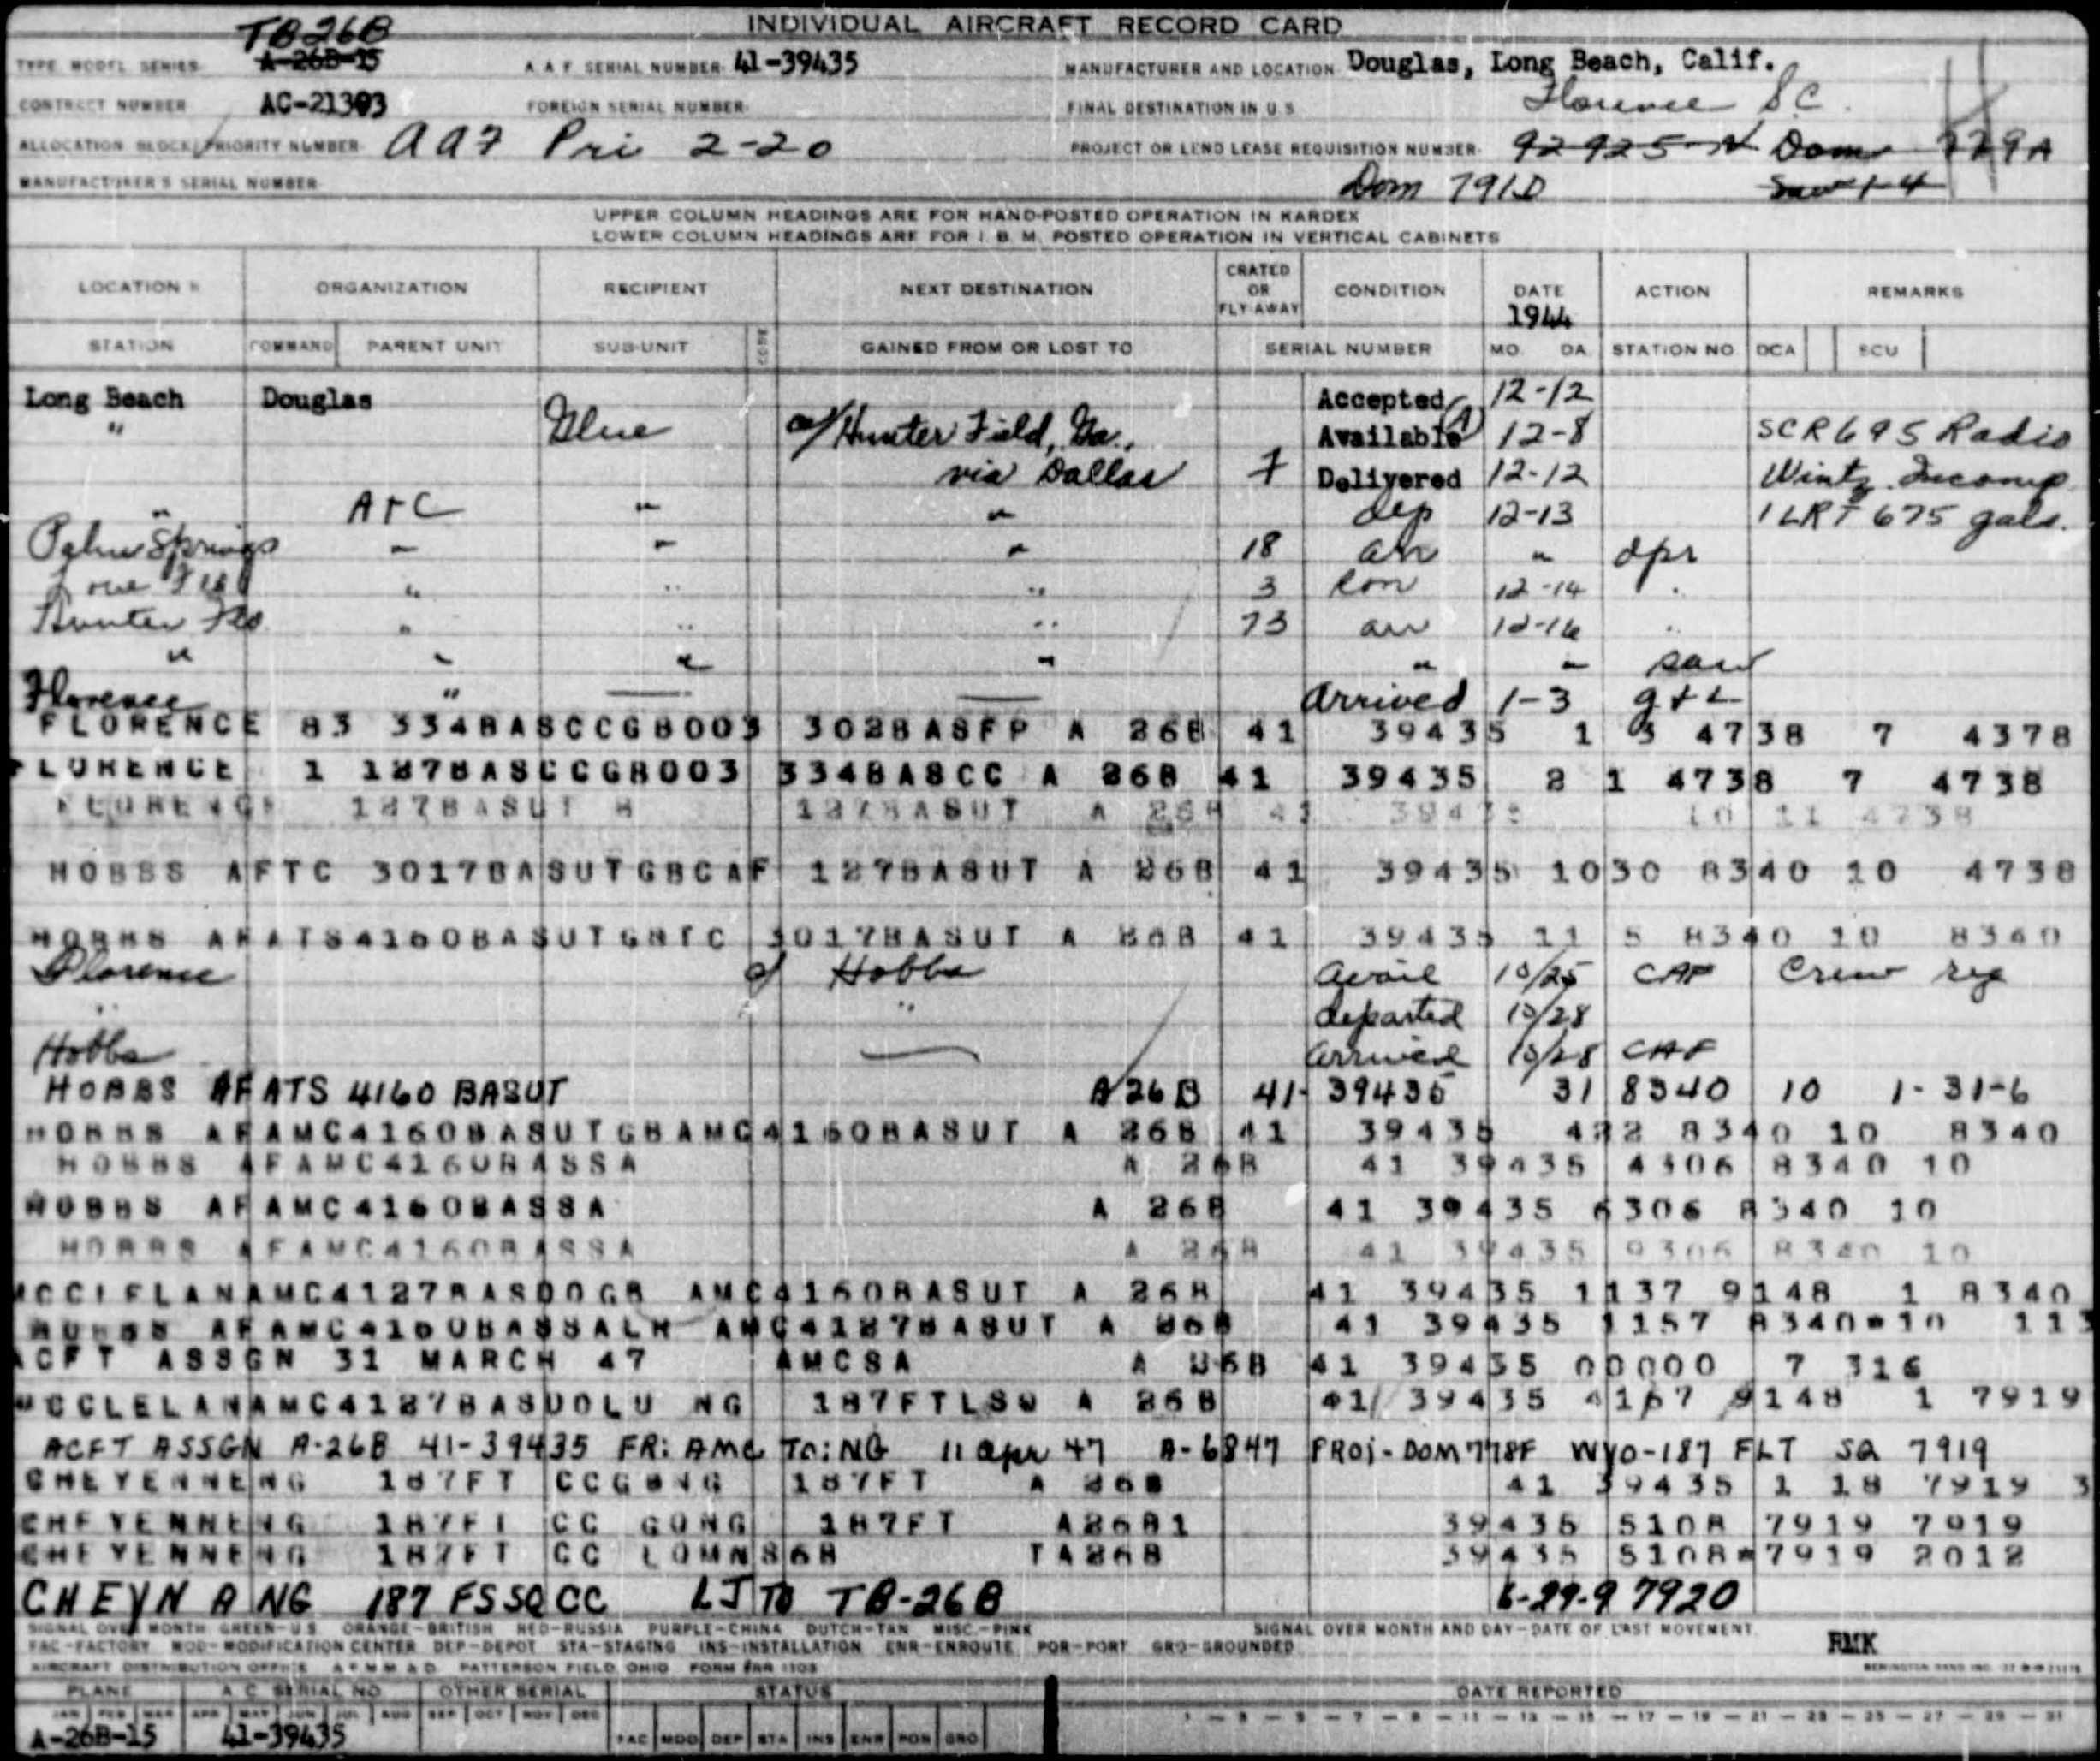 INDIVIDUAL AIRCRAFT RECORD CARD
TB26B
TYPE MODEL SERIES A-26B-15 A A F SERIAL NUMBER 41-39435 MANUFACTURER AND LOCATION Douglas, Long Beach, Calif.
CONTRACT NUMBER AC-21393 FOREIGN SERIAL NUMBER FINAL DESTINATION IN U.S. Florence S.C.
ALLOCATION BLOCK/PRIORITY NUMBER AAF Pri 2-20 PROJECT OR LEND LEASE REQUISITION NUMBER 92925-N Dom 729A
MANUFACTURER'S SERIAL NUMBER Dom 791D
UPPER COLUMN HEADINGS ARE FOR HAND-POSTED OPERATION IN KARDEX
LOWER COLUMN HEADINGS ARE FOR I. B. M. POSTED OPERATION IN VERTICAL CABINETS
LOCATION ORGANIZATION RECIPIENT NEXT DESTINATION CRATED OR FLY-AWAY CONDITION DATE 1944 ACTION REMARKS
STATION COMMAND PARENT UNIT SUB-UNIT CODE GAINED FROM OR LOST TO SERIAL NUMBER MO. DA. STATION NO. DCA SCU
Long Beach Douglas Accepted 12-12
" Glue Hunter Field, Ga., Available 12-8 SCR695 Radio
via Dallas 7 Delivered 12-12 Wintz. Incomp
" " " dep 12-13 1 LRT 675 gals.
Palm Springs " " " 18 arr " dpr
" " " 3 12-14
Hunter Fld " " " 73 arr 12-16 "
" " " " " "
Florence " — — Arrived 1-3
FLORENCE 83 334BASCCGB003 302BASFP A 26B 41 39435 1 3 4738 7 4378
FLORENCE 1 127BASCCGB003 334BASCC A 26B 41 39435 2 1 4738 7 4738
FLORENCE 127BASUT 127BASUT A 26B 41 39435 10 11 4738
HOBBS AFTC 3017BASUTGBCAF 127BASUT A 26B 41 39435 1030 8340 10 4738
HOBBS AFATS4160BASUTGBTC 3017BASUT A 26B 41 39435 11 5 8340 10 8340
Florence Hobbs avail 10/25 CAF Crew reg
" " departed 10/28
Hobbs — arrived 10/28 CAF
HOBBS AFATS 4160 BASUT A26B 41- 39435 31 8340 10 1-31-6
HOBBS AFAMC4160BASUTGBAMC4160BASUT A 26B 41 39435 422 8340 10 8340
HOBBS AFAMC4160BASSA A 26B 41 39435 4306 8340 10
HOBBS AFAMC4160BASSA A 26B 41 39435 6306 8340 10
HOBBS AFAMC4160BASSA A 26B 41 39435 9306 8340 10
MCCLELANAMC4127BASDOGB AMC4160BASUT A 26B 41 39435 1137 9148 1 8340
HOBBS AFAMC4160BASSALR AMC4127BASUT A 26B 41 39435 1157 8340*10 113
ACFT ASSGN 31 MARCH 47 AMCSA A 26B 41 39435 00000 7 316
MCCLELANAMC4127BASDOLU NG 187FTLSQ A 26B 41 39435 4167 9148 1 7919
ACFT ASSGN A-26B 41-39435 FR: AMC TO: NG 11 apr 47 A-6847 PROJ-DOM778F WYO-187 FLT SQ 7919
CHEYENNENG 187FT CCGBNG 187FT A 26B 41 39435 1 18 7919 3
CHEYENNENG 187FT CC GONG 187FT A26B1 39435 5108 7919 7919
CHEYENNENG 187FT CC LOMN26B TA26B 39435 5108*7919 2012
CHEYN A NG 187 FSSQ CC LJ TO TB-26B 6-29-9 7920
SIGNAL OVER MONTH GREEN-U.S. ORANGE-BRITISH RED-RUSSIA PURPLE-CHINA DUTCH-TAN MISC.-PINK SIGNAL OVER MONTH AND DAY-DATE OF LAST MOVEMENT.
FAC-FACTORY MOD-MODIFICATION CENTER DEP-DEPOT STA-STAGING INS-INSTALLATION ENR-ENROUTE POR-PORT GRO-GROUNDED RMK
AIRCRAFT DISTRIBUTION OFFICE PATTERSON FIELD, OHIO FORM 1103
PLANE A C SERIAL NO. OTHER SERIAL STATUS DATE REPORTED
JAN FEB MAR APR MAY JUN JUL AUG SEP OCT NOV DEC 1 - 3 - 5 - 7 - 9 - 11 - 13 - 15 - 17 - 19 - 21 - 23 - 25 - 27 - 29 - 31
A-26B-15 41-39435 FAC MOD DEP STA INS ENR POR GRO